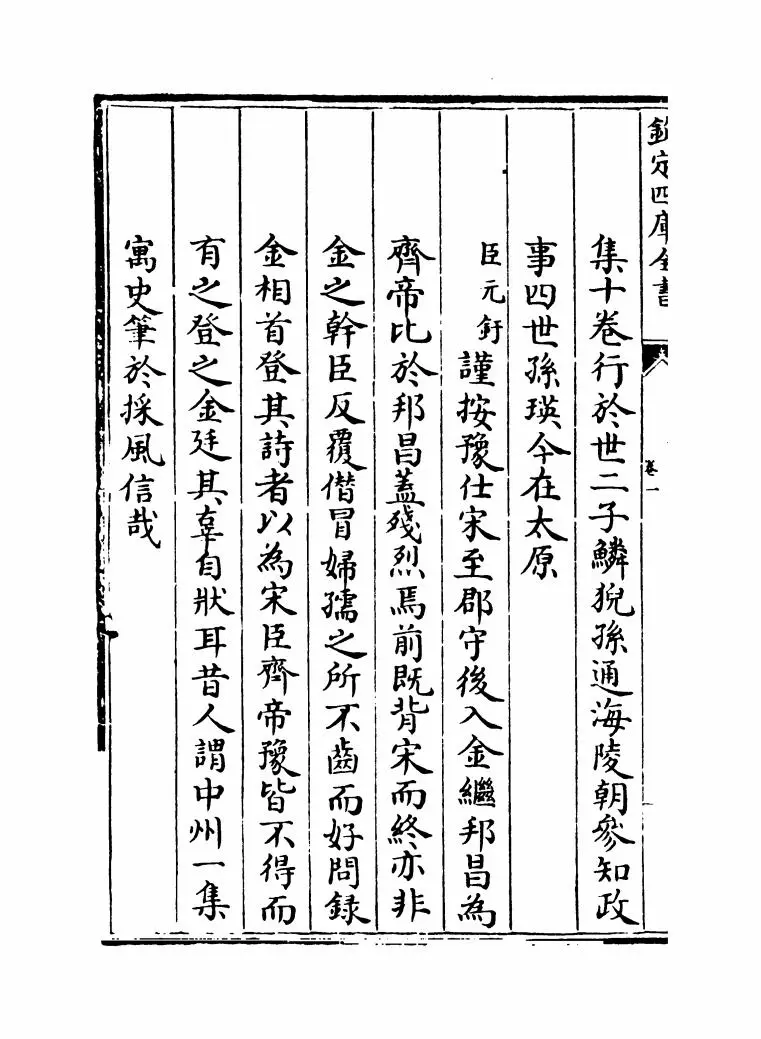 欽定四庫全書
卷一
集十卷行於世二子鱗猊孫通海陵朝參知政
事四世孫瑛今在太原
臣元釪謹按豫仕宋至郡守後入金繼邦昌為
齊帝比於邦昌蓋殘烈焉前既背宋而終亦非
金之幹臣反覆僭冒婦孺之所不齒而好問録
金相首登其詩者以為宋臣齊帝豫皆不得而
有之登之金廷其辜自狀耳昔人謂中州一集
寓史筆於採風信哉